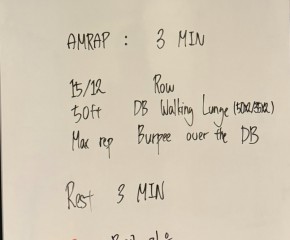 AMRAP : 3 MIN
15/12 Row
50ft DB Walking Lunge (50x2/35x2)
Max rep Burpee over the DB
Rest 3 MIN